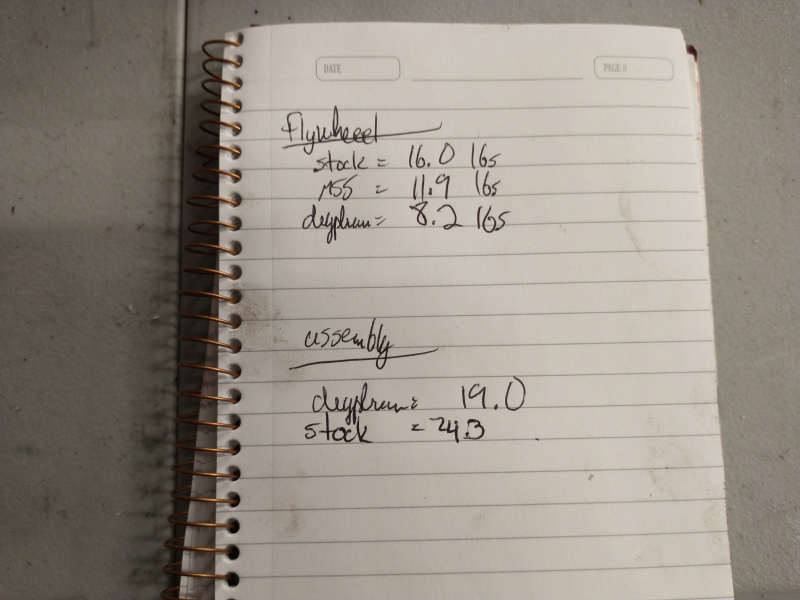 DATE
PAGE #
Flywheel
stock = 16.0 lbs
MSS = 11.9 lbs
= 8.2 lbs
assembly
= 19.0
stock = 24.3